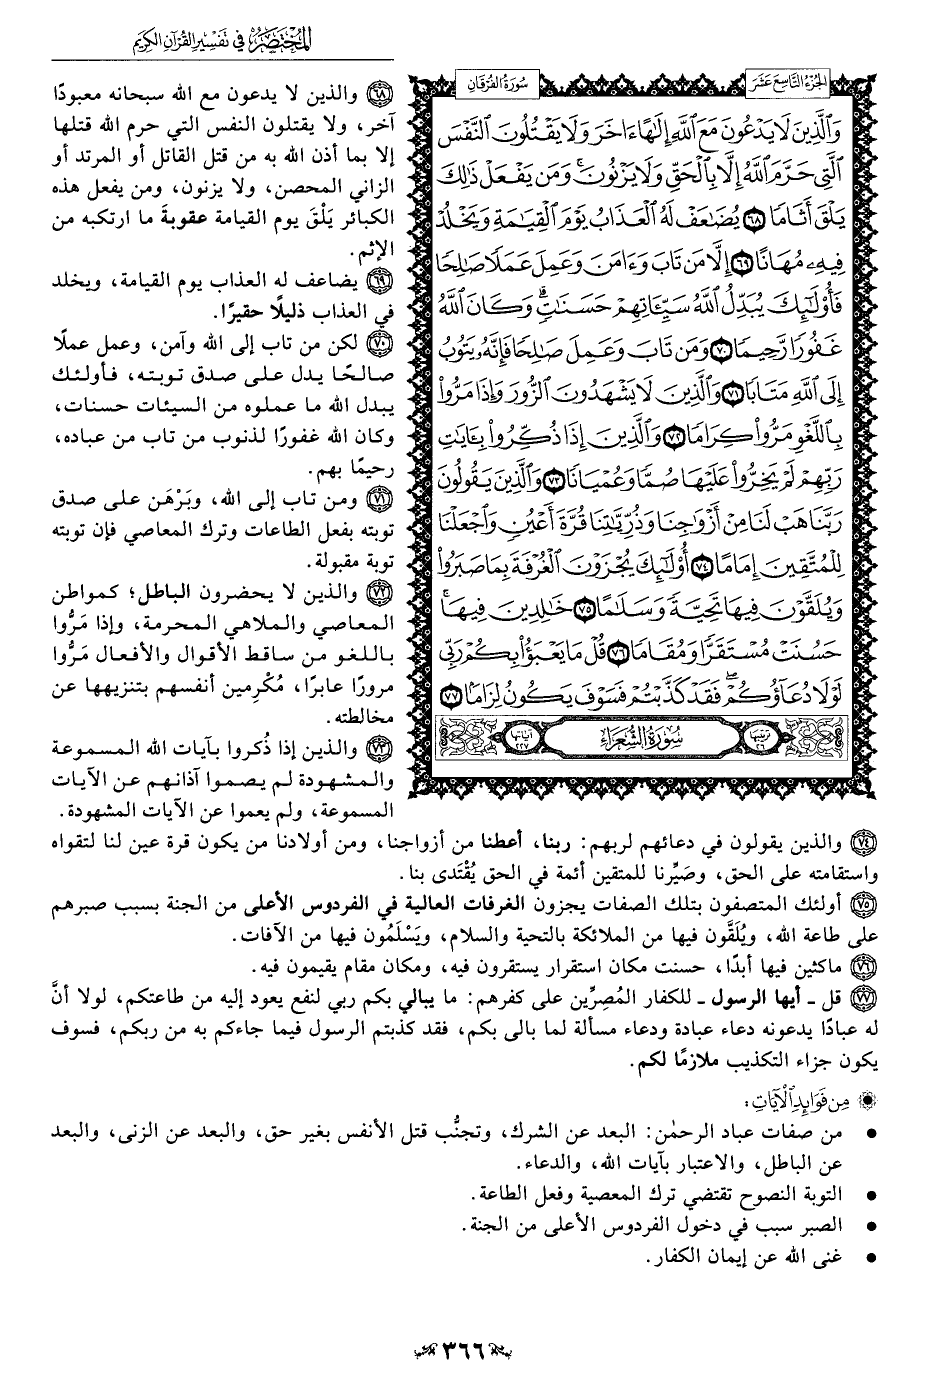 المختصر في تفسير القرآن الكريم
الجزء التاسع عشر
سورة الفرقان
وَالَّذِينَ لَا يَدْعُونَ مَعَ اللَّهِ إِلَٰهًا ءَاخَرَ وَلَا يَقْتُلُونَ النَّفْسَ
الَّتِي حَرَّمَ اللَّهُ إِلَّا بِالْحَقِّ وَلَا يَزْنُونَ ۚ وَمَن يَفْعَلْ ذَٰلِكَ
يَلْقَ أَثَامًا ٦٨ يُضَٰعَفْ لَهُ الْعَذَابُ يَوْمَ الْقِيَٰمَةِ وَيَخْلُدْ
فِيهِۦ مُهَانًا ٦٩ إِلَّا مَن تَابَ وَءَامَنَ وَعَمِلَ عَمَلًا صَٰلِحًا
فَأُو۟لَٰٓئِكَ يُبَدِّلُ اللَّهُ سَيِّـَٔاتِهِمْ حَسَنَٰتٍ ۗ وَكَانَ اللَّهُ
غَفُورًا رَّحِيمًا ٧٠ وَمَن تَابَ وَعَمِلَ صَٰلِحًا فَإِنَّهُۥ يَتُوبُ
إِلَى اللَّهِ مَتَابًا ٧١ وَالَّذِينَ لَا يَشْهَدُونَ الزُّورَ وَإِذَا مَرُّوا۟
بِاللَّغْوِ مَرُّوا۟ كِرَامًا ٧٢ وَالَّذِينَ إِذَا ذُكِّرُوا۟ بِـَٔايَٰتِ
رَبِّهِمْ لَمْ يَخِرُّوا۟ عَلَيْهَا صُمًّا وَعُمْيَانًا ٧٣ وَالَّذِينَ يَقُولُونَ
رَبَّنَا هَبْ لَنَا مِنْ أَزْوَٰجِنَا وَذُرِّيَّٰتِنَا قُرَّةَ أَعْيُنٍ وَاجْعَلْنَا
لِلْمُتَّقِينَ إِمَامًا ٧٤ أُو۟لَٰٓئِكَ يُجْزَوْنَ الْغُرْفَةَ بِمَا صَبَرُوا۟
وَيُلَقَّوْنَ فِيهَا تَحِيَّةً وَسَلَٰمًا ٧٥ خَٰلِدِينَ فِيهَا ۚ
حَسُنَتْ مُسْتَقَرًّا وَمُقَامًا ٧٦ قُلْ مَا يَعْبَؤُا۟ بِكُمْ رَبِّي
لَوْلَا دُعَآؤُكُمْ ۖ فَقَدْ كَذَّبْتُمْ فَسَوْفَ يَكُونُ لِزَامًۢا ٧٧
ترتيبها ٢٦
سورة الشعراء
آياتها ٢٢٧
٦٨ والذين لا يدعون مع الله سبحانه معبودًا
آخر، ولا يقتلون النفس التي حرم الله قتلها
إلا بما أذن الله به من قتل القاتل أو المرتد أو
الزاني المحصن، ولا يزنون، ومن يفعل هذه
الكبائر يَلْقَ يوم القيامة عقوبةَ ما ارتكبه من
الإثم.
٦٩ يضاعف له العذاب يوم القيامة، ويخلد
في العذاب ذليلًا حقيرًا.
٧٠ لكن من تاب إلى الله وآمن، وعمل عملًا
صالحًا يدل على صدق توبته، فأولئك
يبدل الله ما عملوه من السيئات حسنات،
وكان الله غفورًا لذنوب من تاب من عباده،
رحيمًا بهم.
٧١ ومن تاب إلى الله، وبَرْهَن على صدق
توبته بفعل الطاعات وترك المعاصي فإن توبته
توبة مقبولة.
٧٢ والذين لا يحضرون الباطل؛ كمواطن
المعاصي والملاهي المحرمة، وإذا مَرُّوا
باللغو من ساقط الأقوال والأفعال مَرُّوا
مرورًا عابرا، مُكْرِمين أنفسهم بتنزيهها عن
مخالطته.
٧٣ والذين إذا ذُكروا بآيات الله المسموعة
والمشهودة لم يصموا آذانهم عن الآيات
المسموعة، ولم يعموا عن الآيات المشهودة.
٧٤ والذين يقولون في دعائهم لربهم: ربنا، أعطنا من أزواجنا، ومن أولادنا من يكون قرة عين لنا لتقواه
واستقامته على الحق، وصَيِّرنا للمتقين أئمة في الحق يُقْتَدى بنا.
٧٥ أولئك المتصفون بتلك الصفات يجزون الغرفات العالية في الفردوس الأعلى من الجنة بسبب صبرهم
على طاعة الله، ويُلَقَّون فيها من الملائكة بالتحية والسلام، ويَسْلَمُون فيها من الآفات.
٧٦ ماكثين فيها أبدًا، حسنت مكان استقرار يستقرون فيه، ومكان مقام يقيمون فيه.
٧٧ قل ـ أيها الرسول ـ للكفار المُصِرِّين على كفرهم: ما يبالي بكم ربي لنفع يعود إليه من طاعتكم، لولا أنَّ
له عبادًا يدعونه دعاء عبادة ودعاء مسألة لما بالى بكم، فقد كذبتم الرسول فيما جاءكم به من ربكم، فسوف
يكون جزاء التكذيب ملازمًا لكم.
من فوائد الآيات:
• من صفات عباد الرحمٰن: البعد عن الشرك، وتجنُّب قتل الأنفس بغير حق، والبعد عن الزنى، والبعد
عن الباطل، والاعتبار بآيات الله، والدعاء.
• التوبة النصوح تقتضي ترك المعصية وفعل الطاعة.
• الصبر سبب في دخول الفردوس الأعلى من الجنة.
• غنى الله عن إيمان الكفار.
٣٦٦